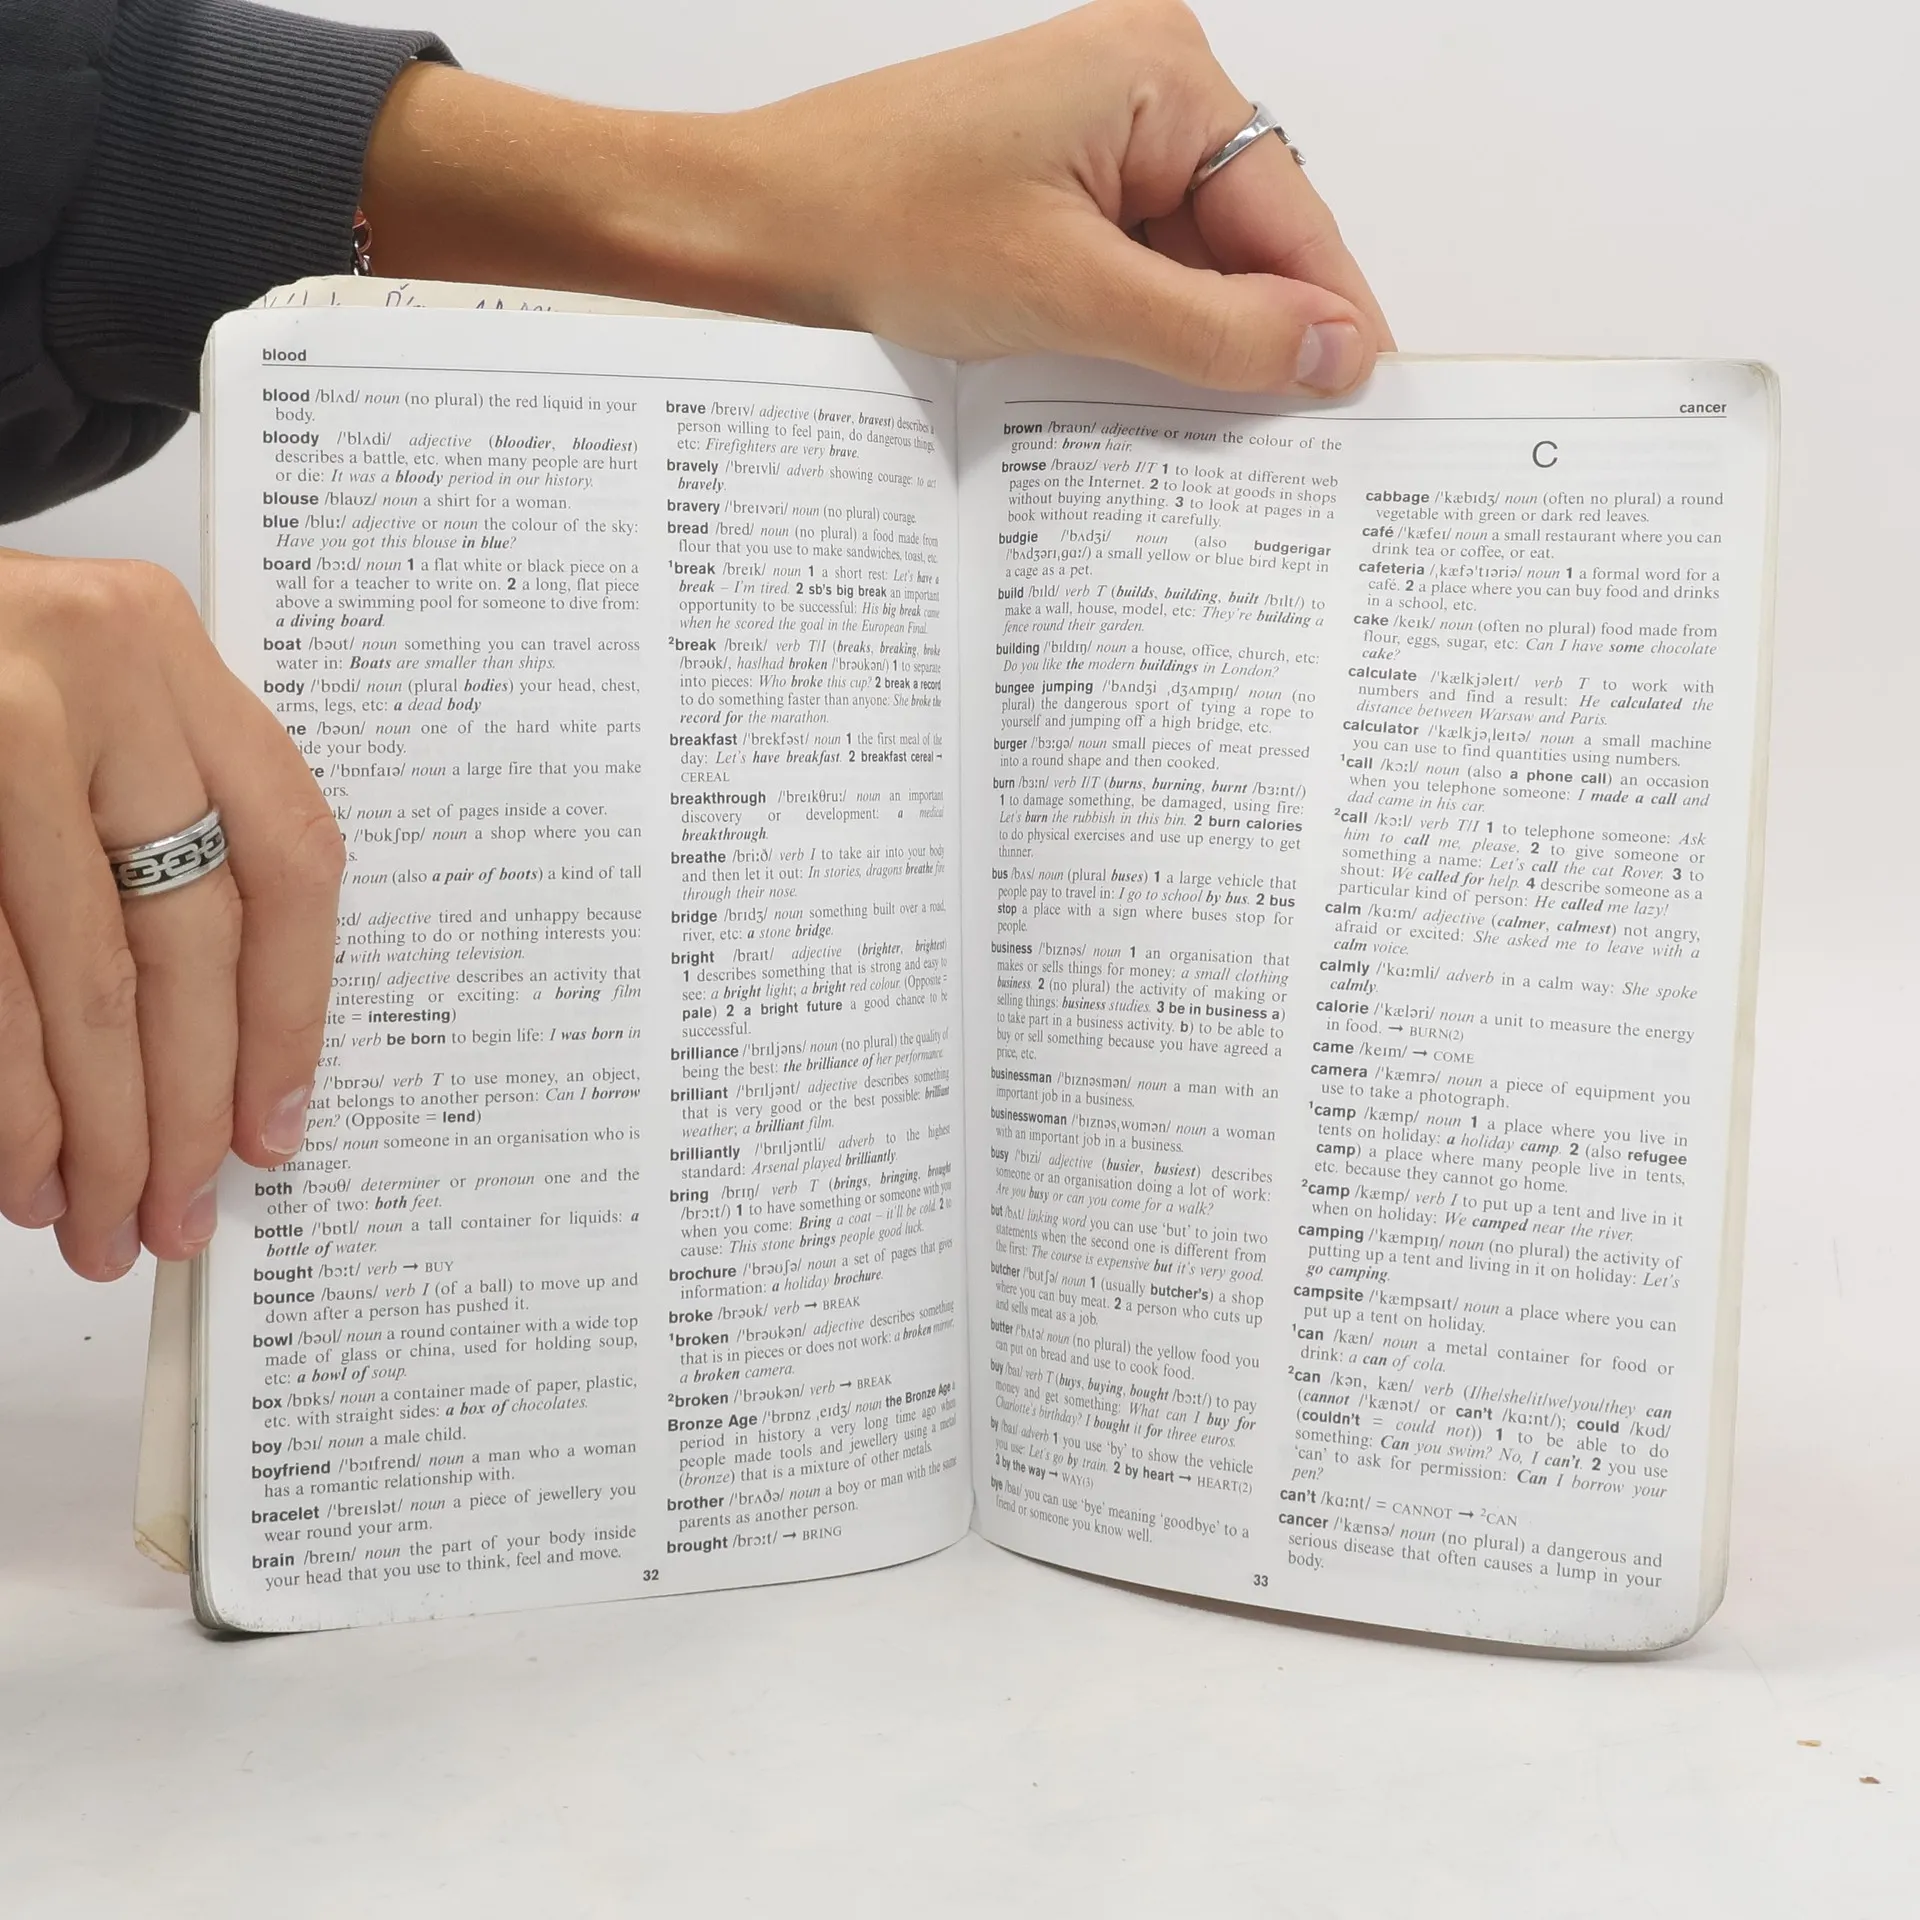 blood
blood /blʌd/ noun (no plural) the red liquid in your
body.
bloody /'blʌdi/ adjective (bloodier, bloodiest)
describes a battle, etc. when many people are hurt
or die: It was a bloody period in our history.
blouse /blaʊz/ noun a shirt for a woman.
blue /bluː/ adjective or noun the colour of the sky:
Have you got this blouse in blue?
board /bɔːd/ noun 1 a flat white or black piece on a
wall for a teacher to write on. 2 a long, flat piece
above a swimming pool for someone to dive from:
a diving board.
boat /bəʊt/ noun something you can travel across
water in: Boats are smaller than ships.
body /'bɒdi/ noun (plural bodies) your head, chest,
arms, legs, etc: a dead body
ne /bəʊn/ noun one of the hard white parts
ide your body.
re /'bɒnfaɪə/ noun a large fire that you make
ors.
ʊk/ noun a set of pages inside a cover.
p /'bʊkʃɒp/ noun a shop where you can
s.
/ noun (also a pair of boots) a kind of tall
ɔːd/ adjective tired and unhappy because
e nothing to do or nothing interests you:
d with watching television.
bɔːrɪŋ/ adjective describes an activity that
interesting or exciting: a boring film
ite = interesting)
ɔːn/ verb be born to begin life: I was born in
est.
/'bɒrəʊ/ verb T to use money, an object,
hat belongs to another person: Can I borrow
pen? (Opposite = lend)
/bɒs/ noun someone in an organisation who is
a manager.
both /bəʊθ/ determiner or pronoun one and the
other of two: both feet.
bottle /'bɒtl/ noun a tall container for liquids: a
bottle of water.
bought /bɔːt/ verb → BUY
bounce /baʊns/ verb I (of a ball) to move up and
down after a person has pushed it.
bowl /bəʊl/ noun a round container with a wide top
made of glass or china, used for holding soup,
etc: a bowl of soup.
box /bɒks/ noun a container made of paper, plastic,
etc. with straight sides: a box of chocolates.
boy /bɔɪ/ noun a male child.
boyfriend /'bɔɪfrend/ noun a man who a woman
has a romantic relationship with.
bracelet /'breɪslət/ noun a piece of jewellery you
wear round your arm.
brain /breɪn/ noun the part of your body inside
your head that you use to think, feel and move.
brave /breɪv/ adjective (braver, bravest) describes a
person willing to feel pain, do dangerous things,
etc: Firefighters are very brave.
bravely /'breɪvli/ adverb showing courage: to act
bravely.
bravery /'breɪvəri/ noun (no plural) courage.
bread /bred/ noun (no plural) a food made from
flour that you use to make sandwiches, toast, etc.
¹break /breɪk/ noun 1 a short rest: Let's have a
break – I'm tired. 2 sb's big break an important
opportunity to be successful: His big break came
when he scored the goal in the European Final.
²break /breɪk/ verb T/I (breaks, breaking, broke
/brəʊk/, has/had broken /'brəʊkən/) 1 to separate
into pieces: Who broke this cup? 2 break a record
to do something faster than anyone: She broke the
record for the marathon.
breakfast /'brekfəst/ noun 1 the first meal of the
day: Let's have breakfast. 2 breakfast cereal →
CEREAL
breakthrough /'breɪkθruː/ noun an important
discovery or development: a medical
breakthrough.
breathe /briːð/ verb I to take air into your body
and then let it out: In stories, dragons breathe fire
through their nose.
bridge /brɪdʒ/ noun something built over a road,
river, etc: a stone bridge.
bright /braɪt/ adjective (brighter, brightest)
1 describes something that is strong and easy to
see: a bright light; a bright red colour. (Opposite =
pale) 2 a bright future a good chance to be
successful.
brilliance /'brɪljəns/ noun (no plural) the quality of
being the best: the brilliance of her performance.
brilliant /'brɪljənt/ adjective describes something
that is very good or the best possible: brilliant
weather; a brilliant film.
brilliantly /'brɪljəntli/ adverb to the highest
standard: Arsenal played brilliantly.
bring /brɪŋ/ verb T (brings, bringing, brought
/brɔːt/) 1 to have something or someone with you
when you come: Bring a coat – it'll be cold. 2 to
cause: This stone brings people good luck.
brochure /'brəʊʃə/ noun a set of pages that gives
information: a holiday brochure.
broke /brəʊk/ verb → BREAK
¹broken /'brəʊkən/ adjective describes something
that is in pieces or does not work: a broken mirror,
a broken camera.
²broken /'brəʊkən/ verb → BREAK
Bronze Age /'brɒnz ˌeɪdʒ/ noun the Bronze Age a
period in history a very long time ago when
people made tools and jewellery using a metal
(bronze) that is a mixture of other metals.
brother /'brʌðə/ noun a boy or man with the same
parents as another person.
brought /brɔːt/ → BRING
32
cancer
brown /braʊn/ adjective or noun the colour of the
ground: brown hair.
browse /braʊz/ verb I/T 1 to look at different web
pages on the Internet. 2 to look at goods in shops
without buying anything. 3 to look at pages in a
book without reading it carefully.
budgie /'bʌdʒi/ noun (also budgerigar
/'bʌdʒərɪˌgɑː/) a small yellow or blue bird kept in
a cage as a pet.
build /bɪld/ verb T (builds, building, built /bɪlt/) to
make a wall, house, model, etc: They're building a
fence round their garden.
building /'bɪldɪŋ/ noun a house, office, church, etc:
Do you like the modern buildings in London?
bungee jumping /'bʌndʒi ˌdʒʌmpɪŋ/ noun (no
plural) the dangerous sport of tying a rope to
yourself and jumping off a high bridge, etc.
burger /'bɜːgə/ noun small pieces of meat pressed
into a round shape and then cooked.
burn /bɜːn/ verb I/T (burns, burning, burnt /bɜːnt/)
1 to damage something, be damaged, using fire:
Let's burn the rubbish in this bin. 2 burn calories
to do physical exercises and use up energy to get
thinner.
bus /bʌs/ noun (plural buses) 1 a large vehicle that
people pay to travel in: I go to school by bus. 2 bus
stop a place with a sign where buses stop for
people.
business /'bɪznəs/ noun 1 an organisation that
makes or sells things for money: a small clothing
business. 2 (no plural) the activity of making or
selling things: business studies. 3 be in business a)
to take part in a business activity. b) to be able to
buy or sell something because you have agreed a
price, etc.
businessman /'bɪznəsmən/ noun a man with an
important job in a business.
businesswoman /'bɪznəsˌwʊmən/ noun a woman
with an important job in a business.
busy /'bɪzi/ adjective (busier, busiest) describes
someone or an organisation doing a lot of work:
Are you busy or can you come for a walk?
but /bʌt/ linking word you can use 'but' to join two
statements when the second one is different from
the first: The course is expensive but it's very good.
butcher /'bʊtʃə/ noun 1 (usually butcher's) a shop
where you can buy meat. 2 a person who cuts up
and sells meat as a job.
butter /'bʌtə/ noun (no plural) the yellow food you
can put on bread and use to cook food.
buy /baɪ/ verb T (buys, buying, bought /bɔːt/) to pay
money and get something: What can I buy for
Charlotte's birthday? I bought it for three euros.
by /baɪ/ adverb 1 you use 'by' to show the vehicle
you use: Let's go by train. 2 by heart → HEART(2)
3 by the way → WAY(3)
bye /baɪ/ you can use 'bye' meaning 'goodbye' to a
friend or someone you know well.
C
cabbage /'kæbɪdʒ/ noun (often no plural) a round
vegetable with green or dark red leaves.
café /'kæfeɪ/ noun a small restaurant where you can
drink tea or coffee, or eat.
cafeteria /ˌkæfə'tɪəriə/ noun 1 a formal word for a
café. 2 a place where you can buy food and drinks
in a school, etc.
cake /keɪk/ noun (often no plural) food made from
flour, eggs, sugar, etc: Can I have some chocolate
cake?
calculate /'kælkjəleɪt/ verb T to work with
numbers and find a result: He calculated the
distance between Warsaw and Paris.
calculator /'kælkjəˌleɪtə/ noun a small machine
you can use to find quantities using numbers.
¹call /kɔːl/ noun (also a phone call) an occasion
when you telephone someone: I made a call and
dad came in his car.
²call /kɔːl/ verb T/I 1 to telephone someone: Ask
him to call me, please. 2 to give someone or
something a name: Let's call the cat Rover. 3 to
shout: We called for help. 4 describe someone as a
particular kind of person: He called me lazy!
calm /kɑːm/ adjective (calmer, calmest) not angry,
afraid or excited: She asked me to leave with a
calm voice.
calmly /'kɑːmli/ adverb in a calm way: She spoke
calmly.
calorie /'kæləri/ noun a unit to measure the energy
in food. → BURN(2)
came /keɪm/ → COME
camera /'kæmrə/ noun a piece of equipment you
use to take a photograph.
¹camp /kæmp/ noun 1 a place where you live in
tents on holiday: a holiday camp. 2 (also refugee
camp) a place where many people live in tents,
etc. because they cannot go home.
²camp /kæmp/ verb I to put up a tent and live in it
when on holiday: We camped near the river.
camping /'kæmpɪŋ/ noun (no plural) the activity of
putting up a tent and living in it on holiday: Let's
go camping.
campsite /'kæmpsaɪt/ noun a place where you can
put up a tent on holiday.
¹can /kæn/ noun a metal container for food or
drink: a can of cola.
²can /kən, kæn/ verb (I/he/she/it/we/you/they can
(cannot /'kænət/ or can't /kɑːnt/); could /kʊd/
(couldn't = could not)) 1 to be able to do
something: Can you swim? No, I can't. 2 you use
'can' to ask for permission: Can I borrow your
pen?
can't /kɑːnt/ = CANNOT → ²CAN
cancer /'kænsə/ noun (no plural) a dangerous and
serious disease that often causes a lump in your
body.
33